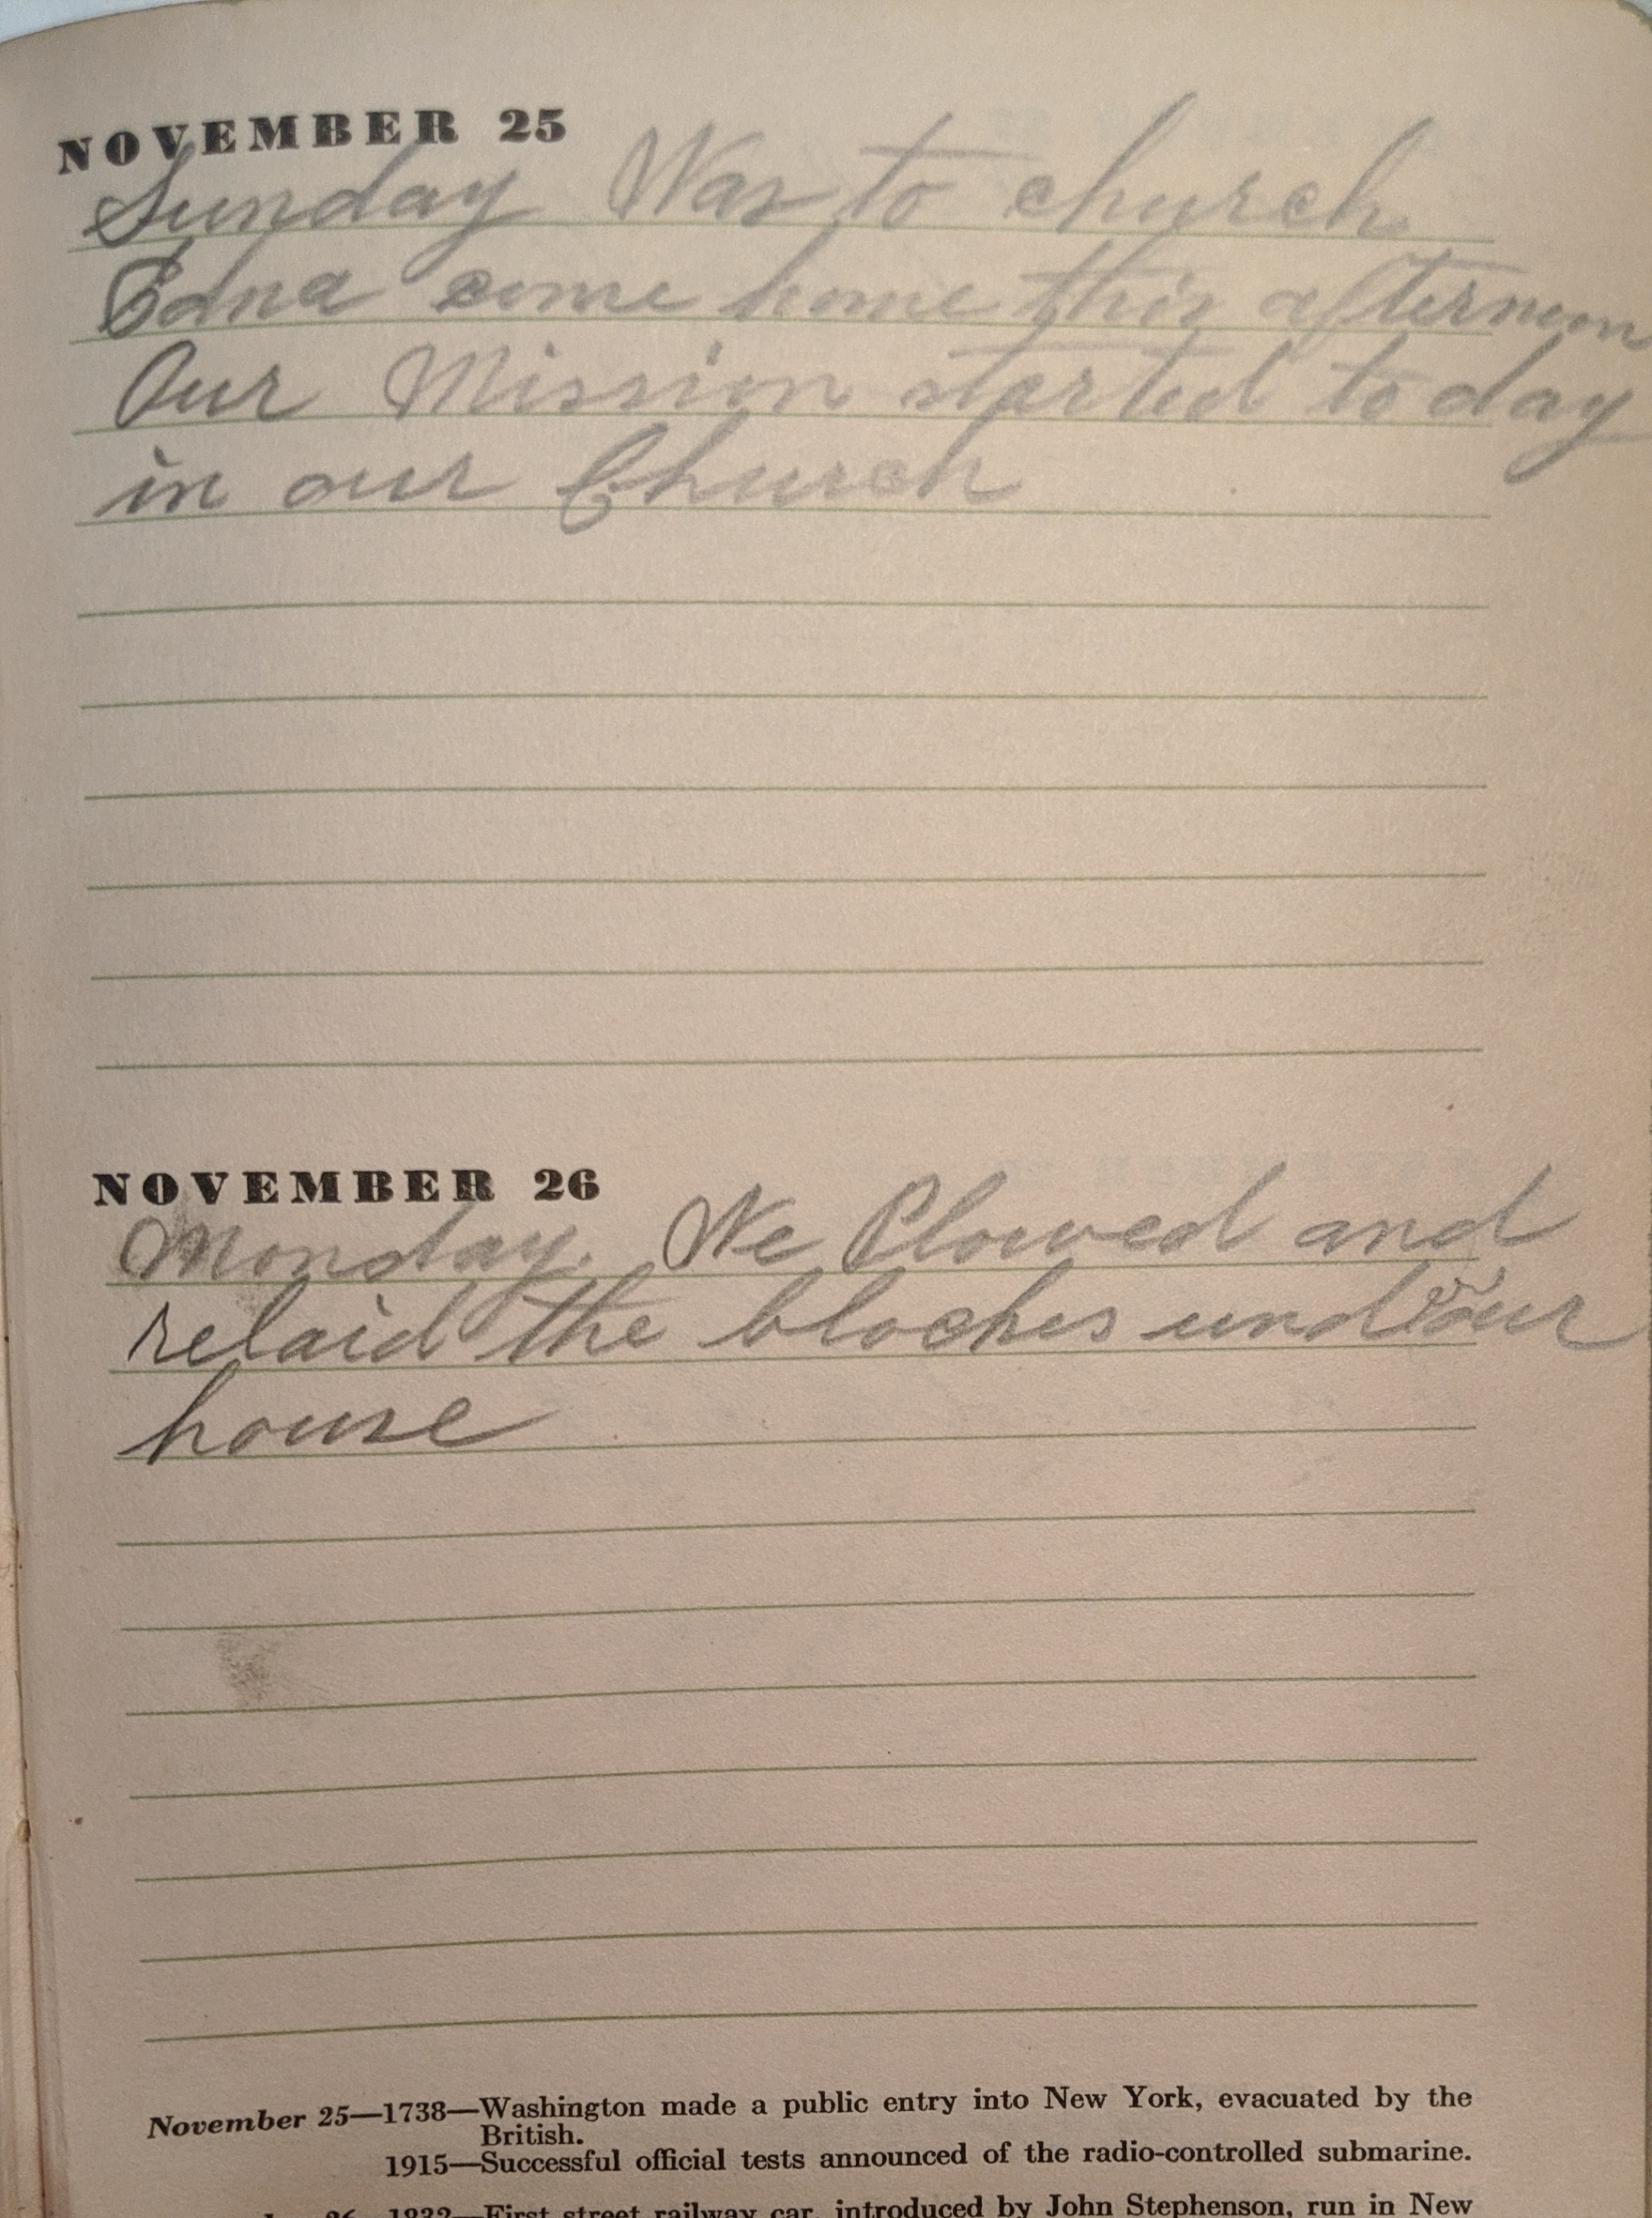 NOVEMBER 25
Sunday Was to church
Edna come home this afternoon
Our Mission started to day
in our Church
NOVEMBER 26
Monday. We Plowed and
relaid the bloches under our
house
November 25—1738—Washington made a public entry into New York, evacuated by the
British.
1915—Successful official tests announced of the radio-controlled submarine.
26—1832—First street railway car, introduced by John Stephenson, run in New